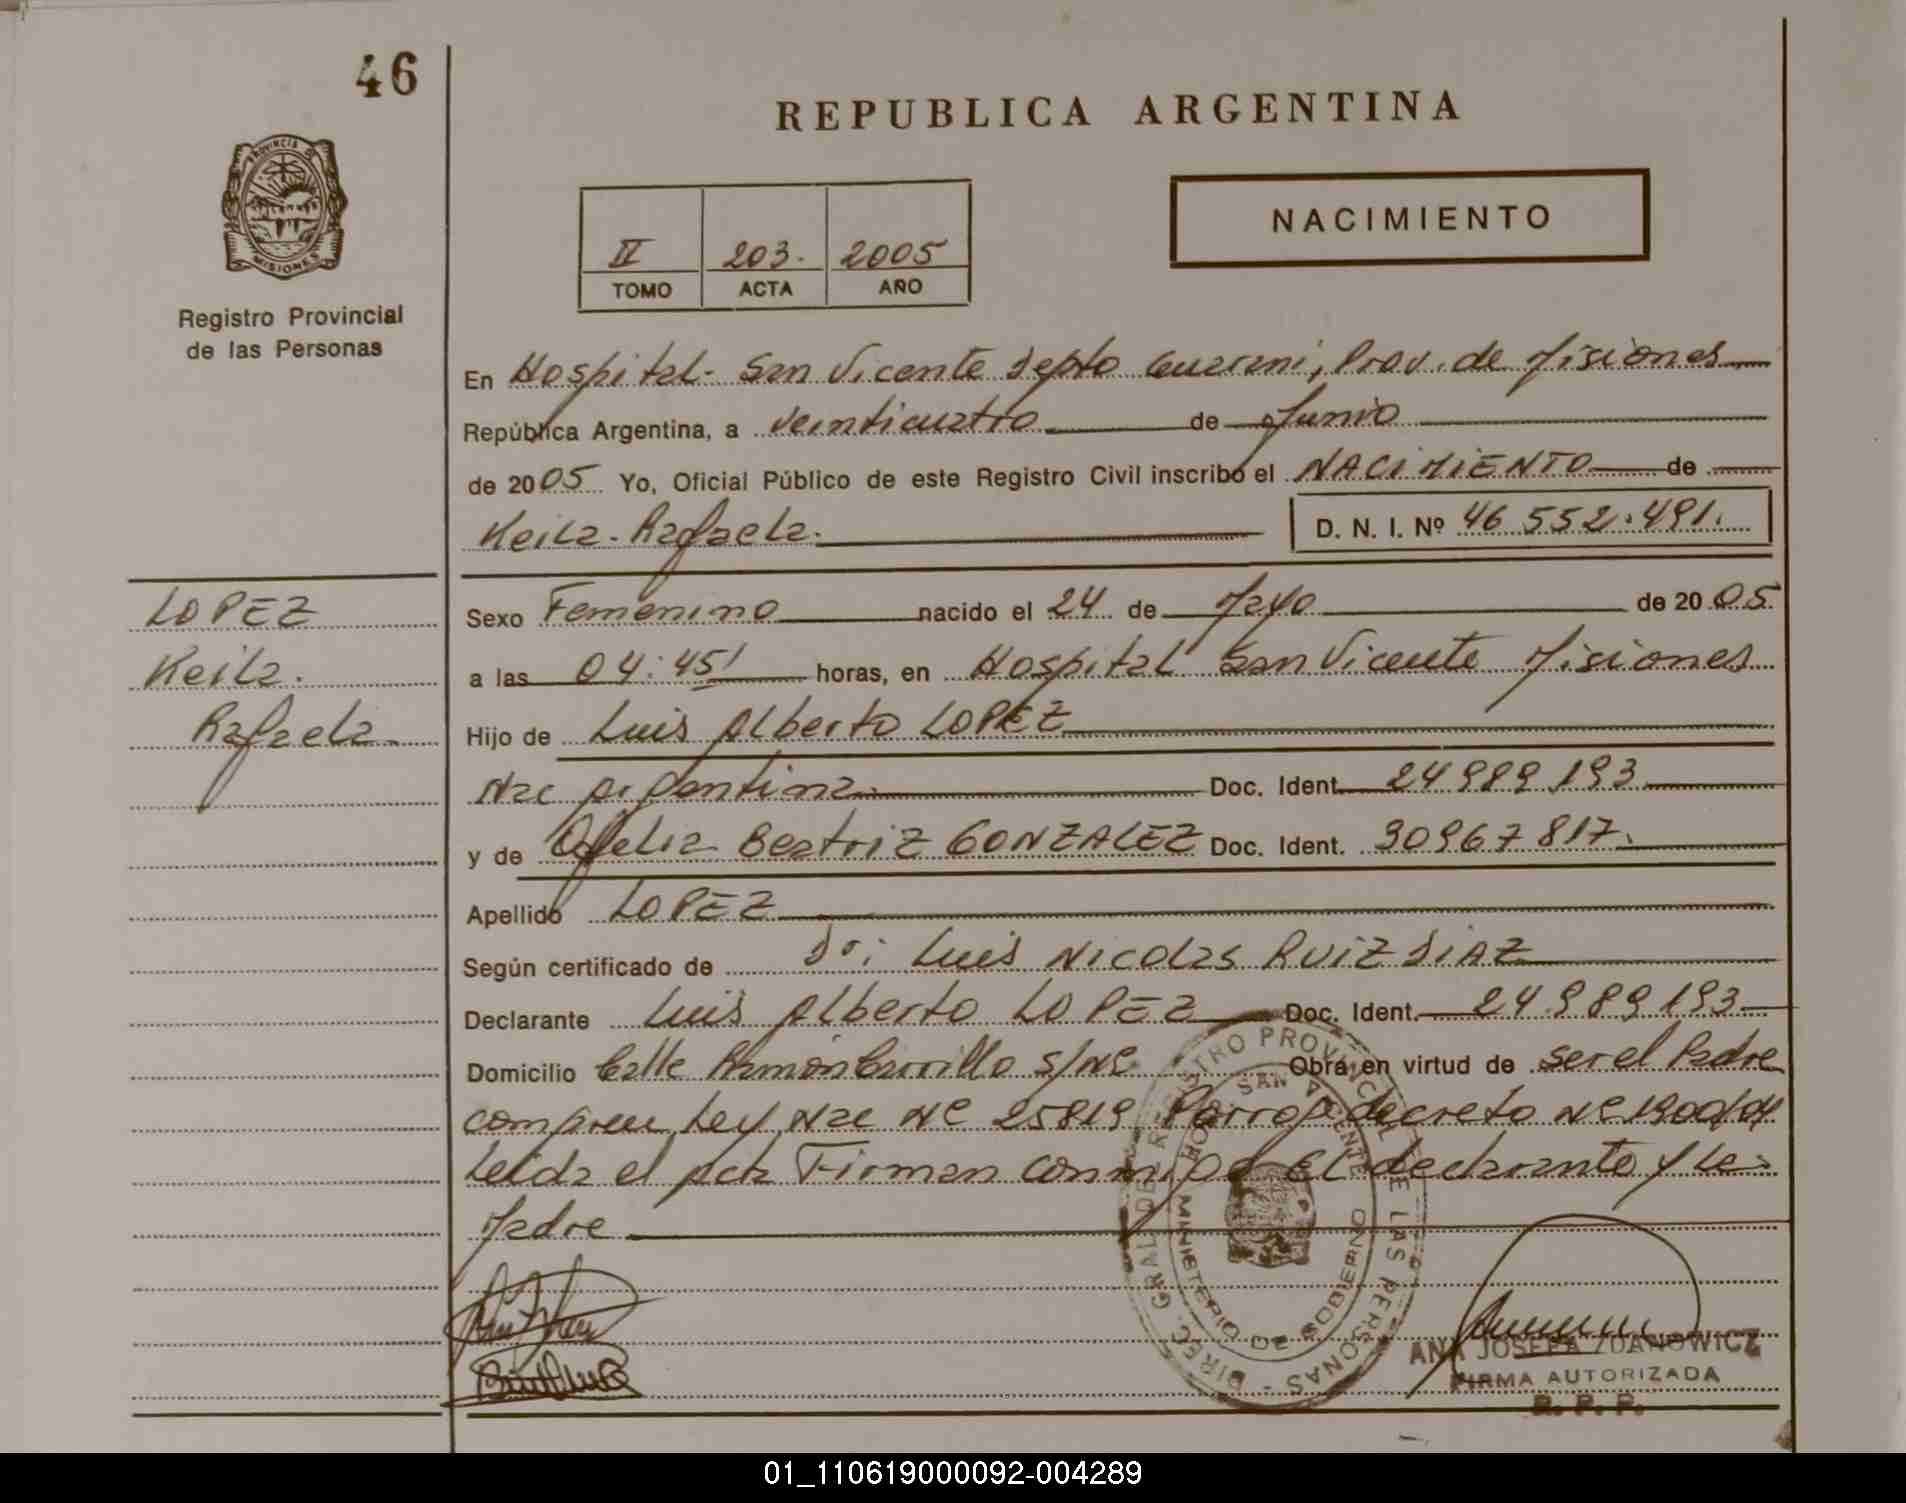 46
REPUBLICA ARGENTINA
PROVINCIA DE MISIONES
Registro Provincial
de las Personas
NACIMIENTO
II 203. 2005
TOMO ACTA AÑO
En Hospital - San Vicente Depto Guarani, Prov. de Misiones
República Argentina, a veinticuatro de Junio
de 2005 Yo, Oficial Público de este Registro Civil inscribo el NACIMIENTO de
Keila - Rafaela. D. N. I. Nº 46 552.491.
LOPEZ
Keila.
Rafaela
Sexo Femenino nacido el 24 de Mayo de 2005
a las 04:45' horas, en Hospital San Vicente Misiones
Hijo de Luis Alberto LOPEZ
Nac Argentina Doc. Ident. 24989193
y de Ofelia Beatriz GONZALEZ Doc. Ident. 30967817.
Apellido LOPEZ
Según certificado de Dr: Luis Nicolas RUIZ DIAZ
Declarante Luis Alberto LOPEZ Doc. Ident. 24989193
Domicilio Calle Ramón Carrillo S/Nº Obra en virtud de ser el Padre
Ley Nac Nº 25819 decreto Nº 1900/04
Leida el acta Firman conmigo El declarante y la
Madre
DIREC. GRAL DE REGISTRO PROVINCIAL DE LAS PERSONAS
HOSP. SAN VICENTE
MINISTERIO DE GOBIERNO
ANA JOSEFA ZDANOWICZ
FIRMA AUTORIZADA
R. P. P.
01_110619000092-004289